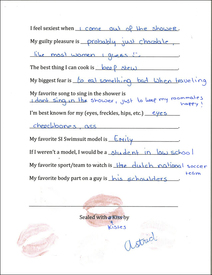 I feel sexiest when i come out of the shower.
My guilty pleasure is probably just chocolate,
like most women i guess!
The best thing I can cook is beef stew
My biggest fear is to eat something bad when traveling
My favorite song to sing in the shower is
i dont sing in the shower, just to keep my roommates happy!
I'm best known for my (eyes, freckles, hips, etc.) eyes
cheekbones, ass
My favorite SI Swimsuit model is Emily
If I weren't a model, I would be a student in law school
My favorite sport/team to watch is the dutch national soccer team
My favorite body part on a guy is his schoulders
Sealed with a Kiss by
kisses
Astrid